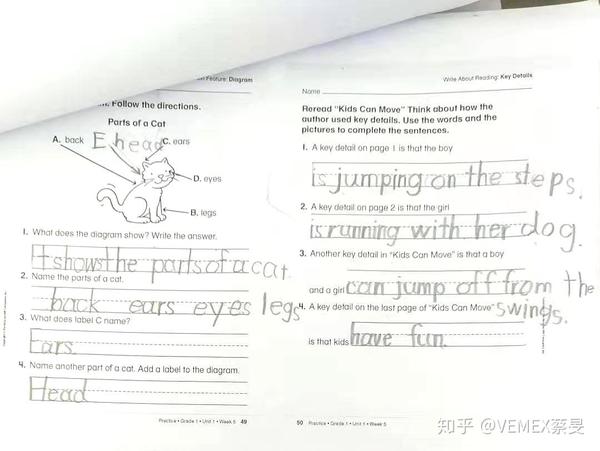 Feature: Diagram
Follow the directions.
Parts of a Cat
A. back
E head
C. ears
D. eyes
B. legs
1. What does the diagram show? Write the answer.
It shows the parts of a cat
2. Name the parts of a cat.
back ears eyes legs
3. What does label C name?
Ears.
4. Name another part of a cat. Add a label to the diagram.
Head
Practice • Grade 1 • Unit 1 • Week 5 49
Write About Reading: Key Details
Name
Reread "Kids Can Move" Think about how the
author used key details. Use the words and the
pictures to complete the sentences.
1. A key detail on page 1 is that the boy
is jumping on the steps.
2. A key detail on page 2 is that the girl
is running with her dog.
3. Another key detail in "Kids Can Move" is that a boy
and a girl can jump off from the
swings.
4. A key detail on the last page of "Kids Can Move"
is that kids have fun.
50 Practice • Grade 1 • Unit 1 • Week 5
知乎 @VEMEX蔡旻